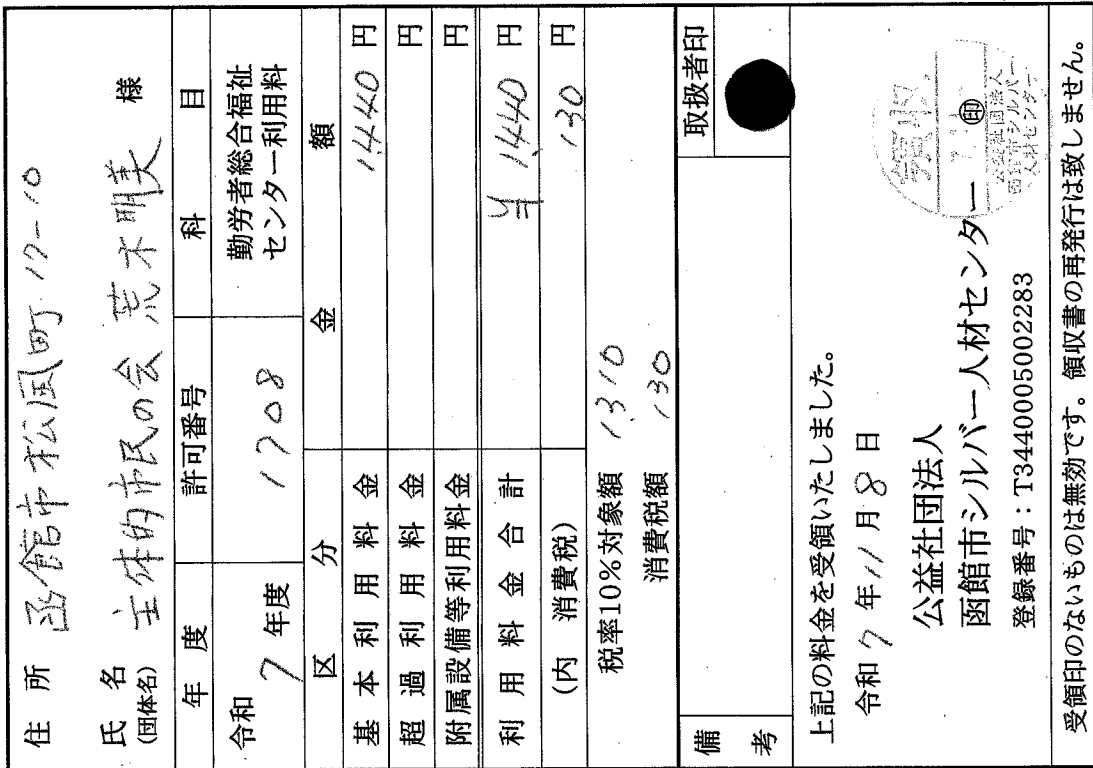 住所 函館市松風町17-10
氏名 主体的市民の会 荒木明美 様
(団体名)
年度 許可番号 科目
令和 7 年度 1708 勤労者総合福祉センター利用料
区分 金額
基本利用料金 1,440 円
超過利用料金 円
附属設備等利用料金 円
利用料金合計 ¥1,440 円
(内 消費税) 130 円
税率10%対象額 1,310
消費税額 130
備考 取扱者印
上記の料金を受領いたしました。
令和 7 年 11 月 8 日
公益社団法人
函館市シルバー人材センター ㊞
登録番号:T3440005002283
領収
公益社団法人
函館市シルバー
人材センター
受領印のないものは無効です。領収書の再発行は致しません。